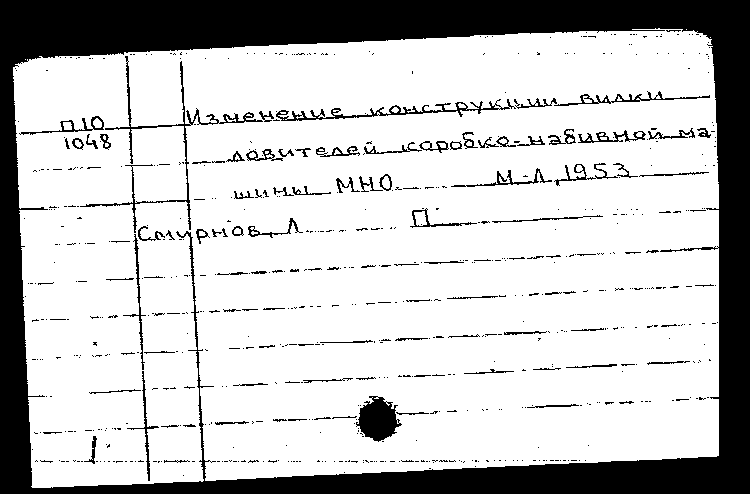 П10
1048
Изменение конструкции вилки
ловителей коробко-набивной ма
шины МНО М-Л, 1953
Смирнов, Л П
1